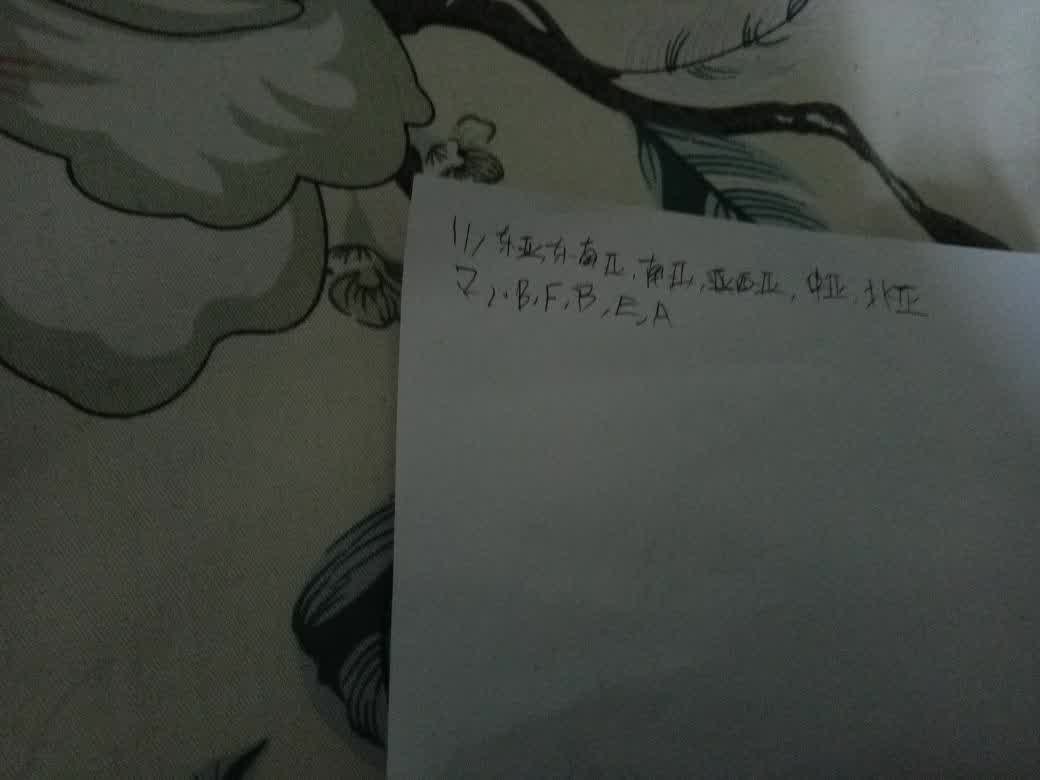 1)、东亚,东南亚,南亚,亚西亚,中亚,北亚
2)、B,F,B,E,A